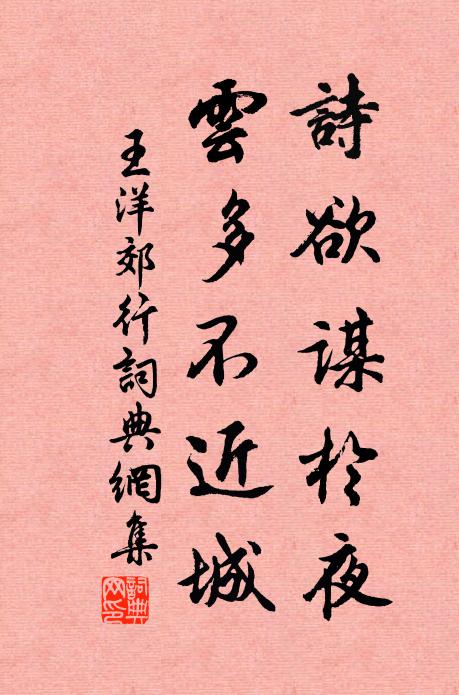 詩欲謀於夜
雲多不近城
王洋郊行詞典網集
詞典網印